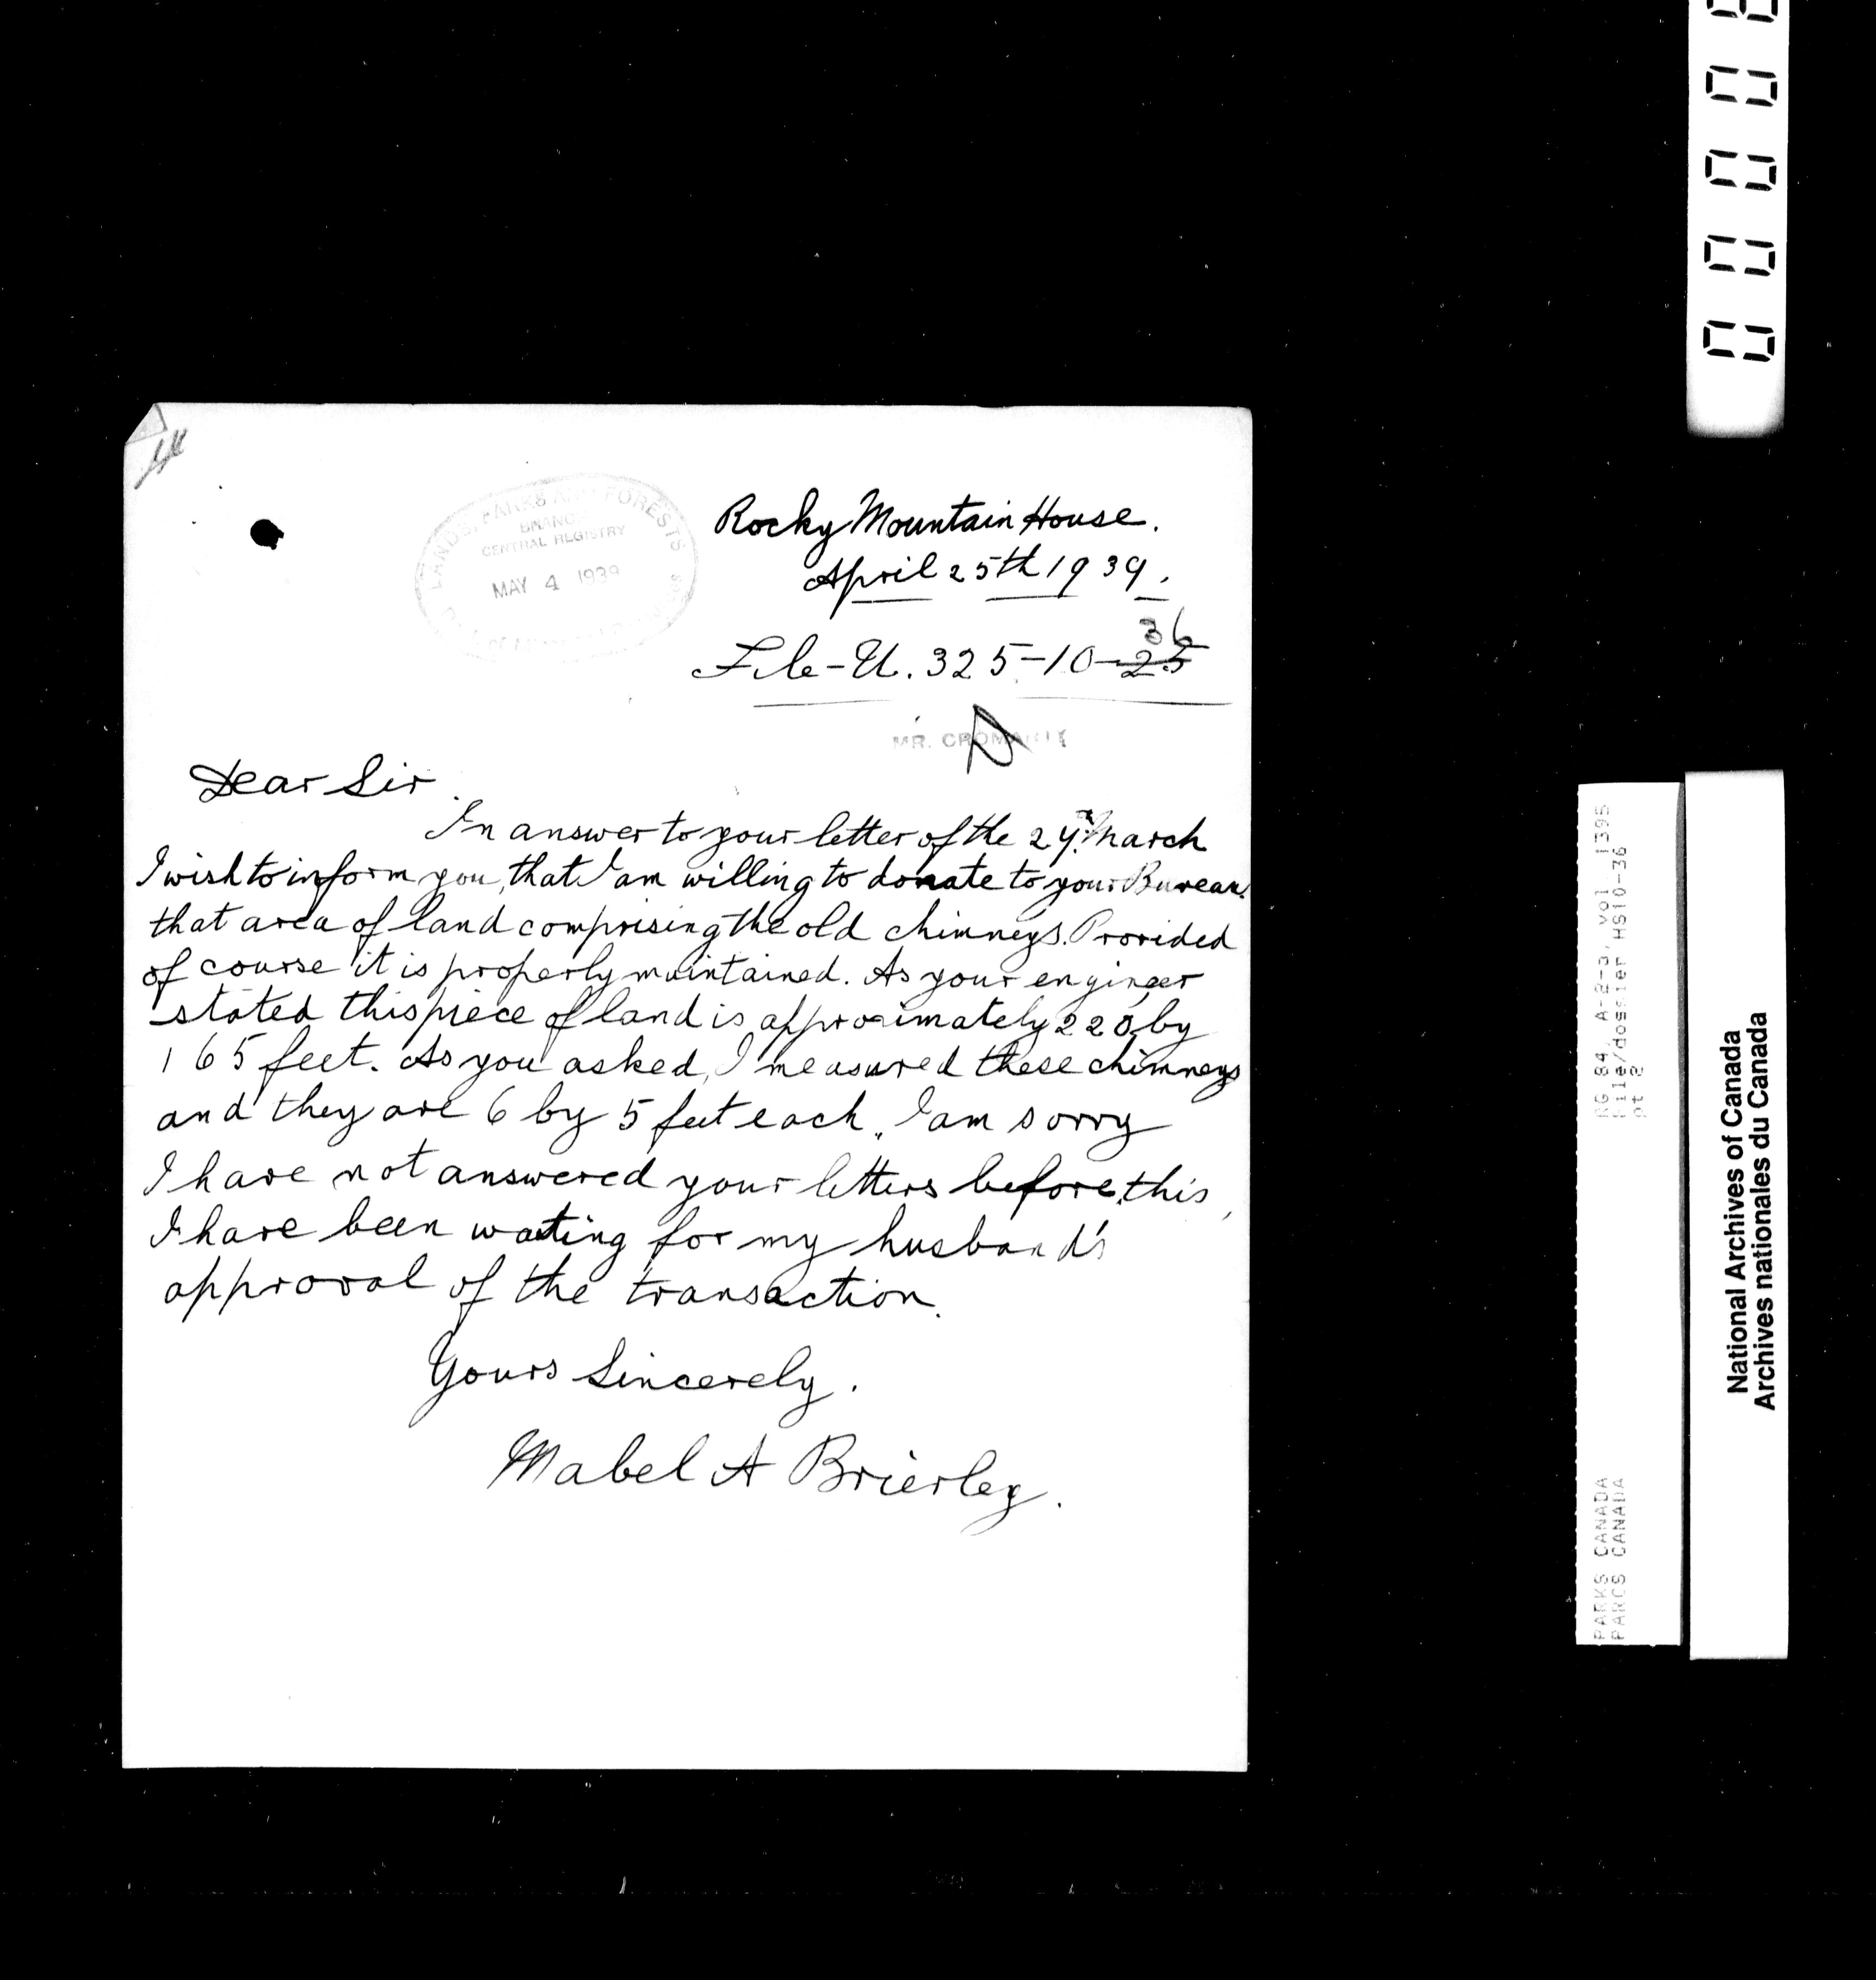 LANDS, PARKS AND FORESTS
BRANCH
CENTRAL REGISTRY
MAY 4 1939
Rocky Mountain House.
April 25th 1939.
File-U. 325-10-25
36
MR. CROMARTY
Dear Sir.
In answer to your letter of the March
I wish to inform you, that I am willing to donate to your Bureau.
that area of land comprising the old chimneys. Provided
of course it is properly maintained. As your engineer
stated this piece of land is approximately 220 by
165 feet. As you asked, I measured these chimneys
and they are 6 by 5 feet each. I am sorry
I have not answered your letters before this,
I have been waiting for my husband's
approval of the transaction.
Yours Sincerely.
Mabel A Brierley.
RG 84, A-2-a, vol 1395
file/dossier HS10-36
pt 2
PARKS CANADA
PARCS CANADA
National Archives of Canada
Archives nationales du Canada